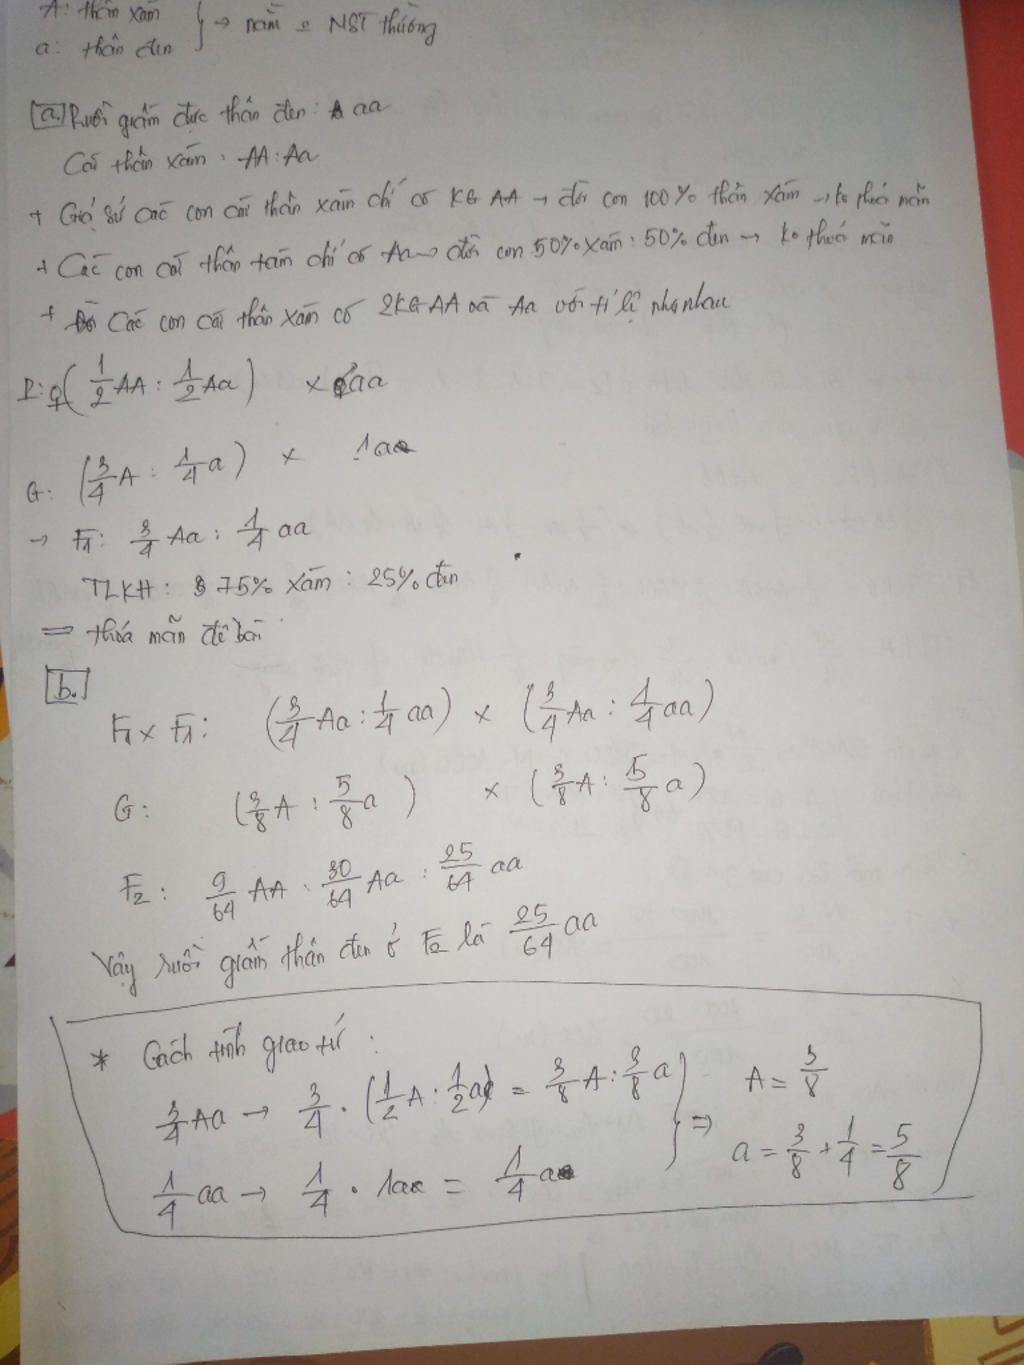 A: thân xám
a: thân đen } → nằm ở NST thường
a. Ruồi giấm đực thân đen: aa
Cái thân xám: AA: Aa
+ Giả sử các con cái thân xám chỉ có KG AA → đời con 100% thân xám → ko thoả mãn
+ Các con cái thân xám chỉ có Aa → đời con 50% xám: 50% đen → ko thoả mãn
+ Các con cái thân xám có 2KG AA và Aa với tỉ lệ như nhau
P: ♀(1/2 AA : 1/2 Aa) × ♂aa
G: (3/4 A : 1/4 a) × 1a
→ F1: 3/4 Aa : 1/4 aa
TLKH: 75% xám : 25% đen
⇒ thoả mãn đề bài
b.
F1 × F1: (3/4 Aa : 1/4 aa) × (3/4 Aa : 1/4 aa)
G: (3/8 A : 5/8 a) × (3/8 A : 5/8 a)
F2: 9/64 AA : 30/64 Aa : 25/64 aa
Vậy ruồi giấm thân đen ở F2 là 25/64 aa
* Cách tính giao tử:
3/4 Aa → 3/4 . (1/2 A : 1/2 a) = 3/8 A : 3/8 a } ⇒ A = 3/8
1/4 aa → 1/4 . 1a = 1/4 a
a = 3/8 + 1/4 = 5/8